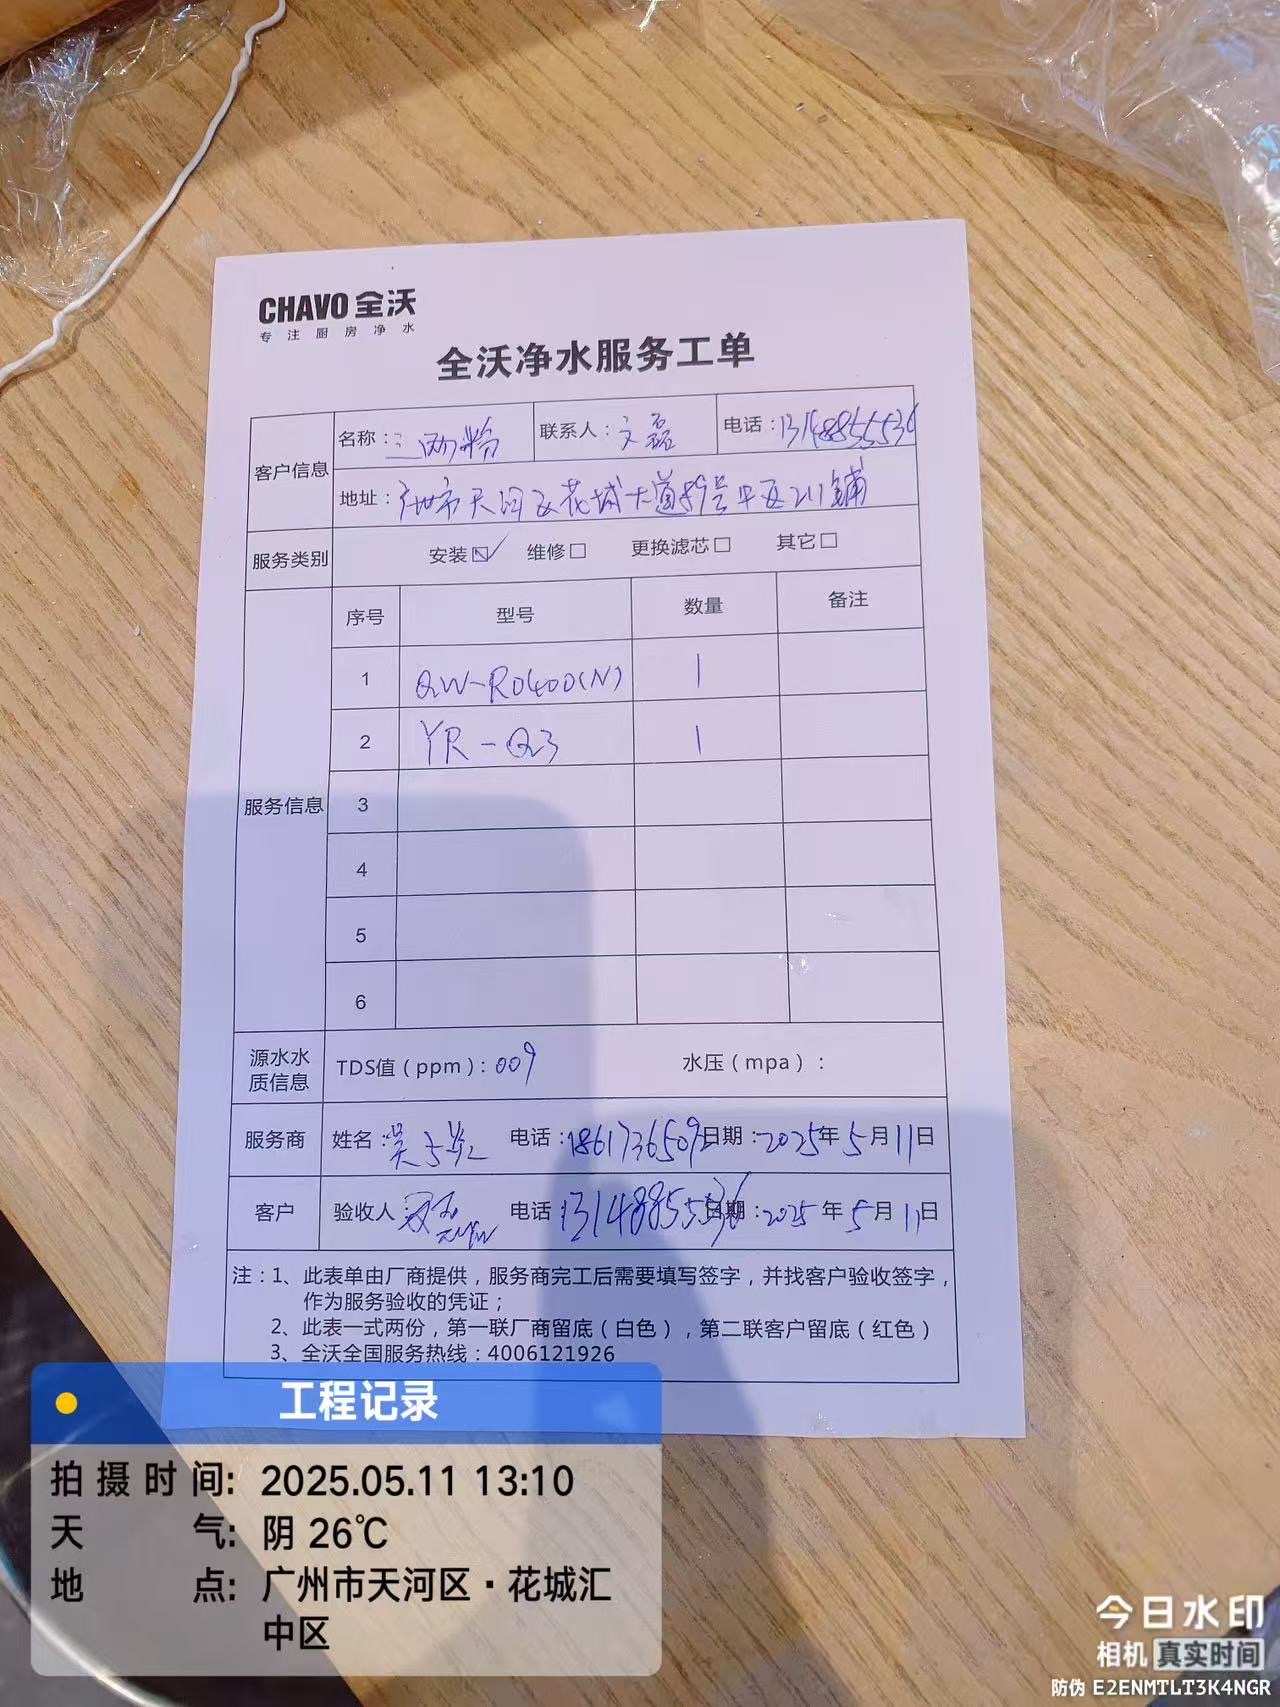 CHAVO 全沃
专注厨房净水
全沃净水服务工单
客户信息
名称：三两粉 联系人：文磊 电话：13148855536
地址：广州市天河区花城大道89号中区211铺
服务类别 安装☑ 维修□ 更换滤芯□ 其它□
服务信息
序号 型号 数量 备注
1 QW-RO400(N) 1
2 YR-Q3 1
3
4
5
6
源水水质信息 TDS值（ppm）：009 水压（mpa）：
服务商 姓名：吴 电话：1861736509 日期：2025年5月11日
客户 验收人 电话 13148855536 日期：2025年5月11日
注：1、此表单由厂商提供，服务商完工后需要填写签字，并找客户验收签字，
作为服务验收的凭证；
2、此表一式两份，第一联厂商留底（白色），第二联客户留底（红色）
3、全沃全国服务热线：4006121926
工程记录
拍摄时间: 2025.05.11 13:10
天气: 阴 26℃
地点: 广州市天河区·花城汇
中区
今日水印
相机 真实时间
防伪 E2ENMTLT3K4NGR